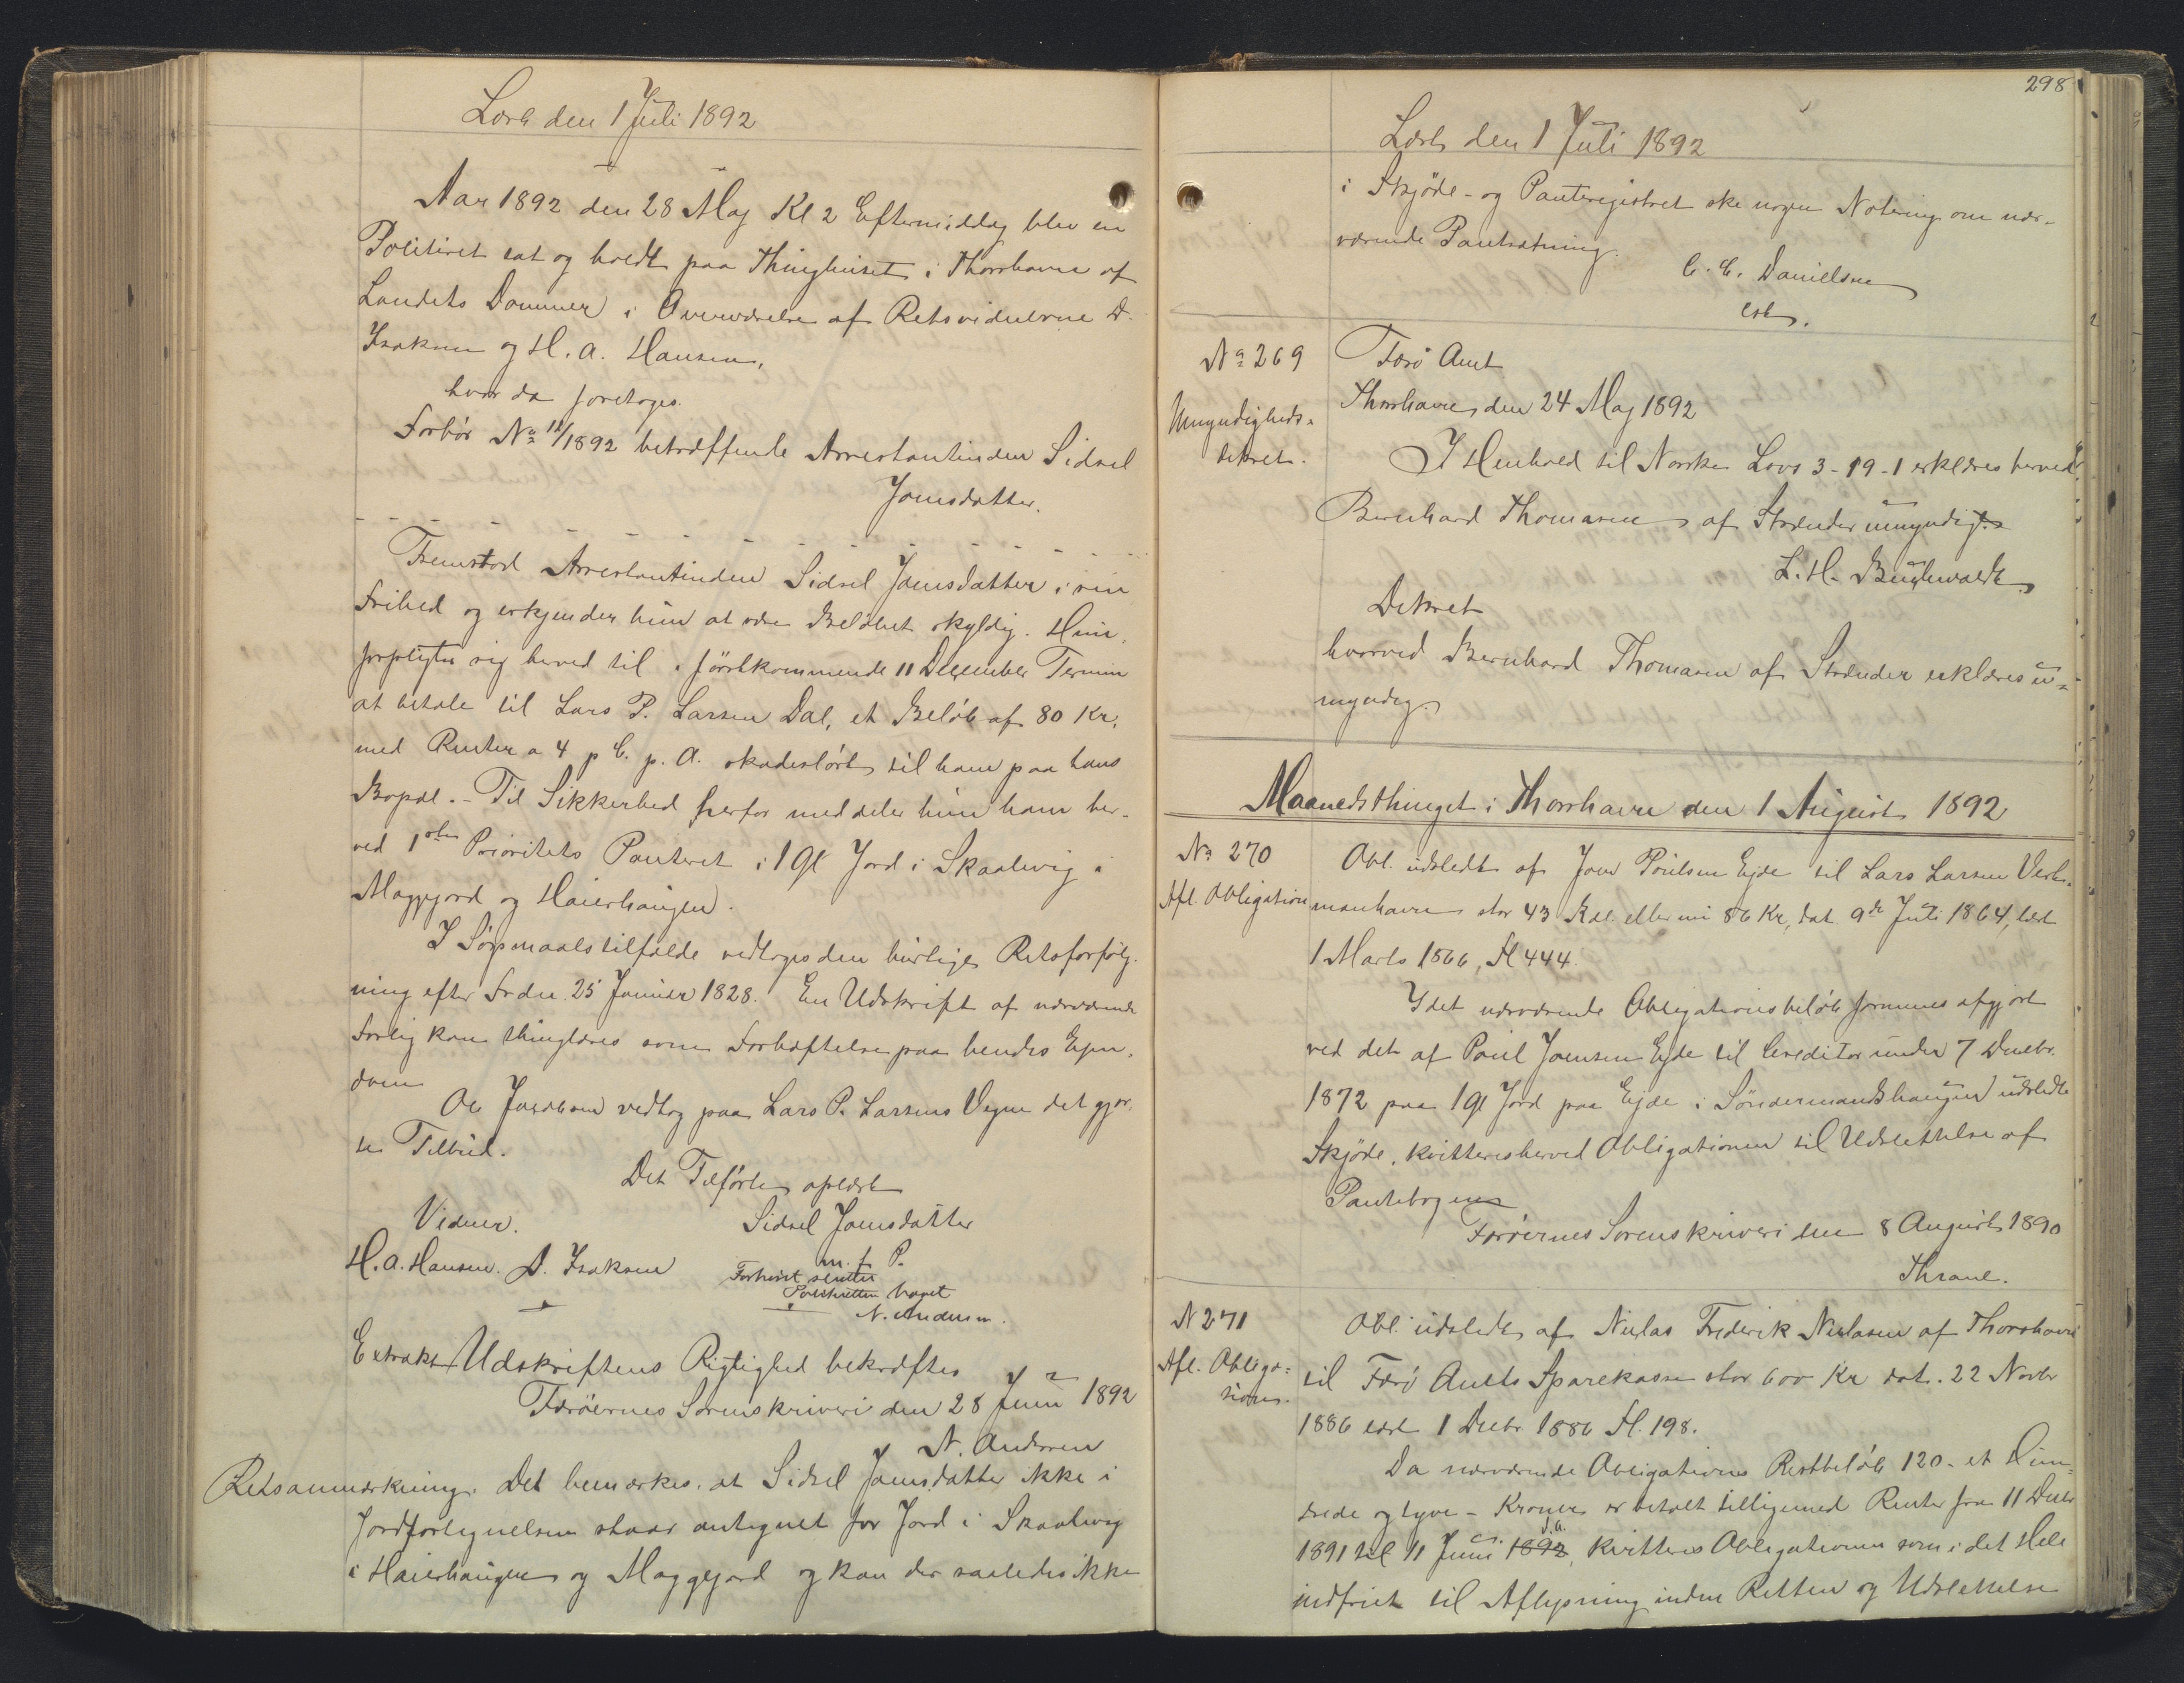 Læst den 1 Juli 1892
Aar 1892 den 28 Maj Kl 2 Eftermiddag blev en
Politiret sat og holdt paa Thinghuset i Thorshavn af
Landets Dommer i Overværelse af Retsvidnerne D.
Isaksen og H. A. Hansen,
hvor da foretoges.
Forhør No 11/1892 betræffende Arrestantinden Sidsel
Joensdatter.
Fremstod Arrestantinden Sidsel Joensdatter i sin
Frihed og erkjender hun at være Beløbet skyldig. Hun
forpligter sig herved til i førstkommende 11 December Termin
at betale til Lars P. Larsen Dal, et Beløb af 80 Kr.
med Renter a 4 p C. p. A. skadesløst til ham paa hans
Bopæl. - Til Sikkerhed herfor meddeler hun ham her-
ved 1ste Prioritets Panteret i 1 Gl Jord i Skaalevig i
Maggjord og Haierhaugen.
I Søgsmaalstilfælde vedtoges den hurtige Retsforfølg-
ning efter Frdn. 25 Januar 1828. En Udskrift af nærværende
Forlig kan thinglæses som Forhæftelse paa hendes Ejen-
dom
Ole Jacobsen vedtog paa Lars P. Larsens Vegne det gjor-
te Tilbud.
Det Tilførte oplæst
Vidner.
Sidsel Joensdatter
H. A. Hansen. D. Isaksen
m. f. P.
Forhøret sluttet
Politiretten hævet
N. Andersen.
Extrakt Udskriftens Rigtighed bekræftes
Færøernes Sorenskriveri den 28 Juni 1892
N. Andersen
Retsanmærkning. Det bemærkes, at Sidsel Joensdatter ikke i
Jordfortegnelsen staar antegnet for Jord i Skaalevig
i Haierhaugen og Maggjord og kan der saaledes ikke
298
Læst den 1 Juli 1892
i Skjöde- og Panteregistret ske nogen Notering om nær-
værende Pantsætning.
C. C. Danielsen
cst.
No 269
Umyndigheds-
dekret.
Færö Amt
Thorshavn den 24 Maj 1892
I Henhold til Norske Lovs 3-19-1 erklæres herved
Bernhard Thomasen af Strænder umyndig.
L. H. Buchwaldt
Dekret
hvorved Bernhard Thomasen af Strænder erklæres u-
myndig.
Maanedsthinget i Thorshavn den 1 August 1892
No 270
Afl. Obligation
Obl. udstedt af Joen Poulsen Ejde til Lars Larsen Vest-
manhavn stor 43 Rdl. eller nu 86 Kr, dat. 9de Juli 1864, læst
1 Marts 1866, Fl 444.
Idet nærværende Obligationsbeløb formenes afgjort
ved det af Poul Joensen Ejde til Creditor under 7 Decbr.
1872 paa 1 Gl Jord paa Ejde i Søndermandshaugen udstedte
Skjöde, kvitteres herved Obligationen til Udslettelse af
Pantebogen
Færöernes Sorenskriveri den 8 August 1890
Thrane.
N 271
Afl. Obliga-
tion.
Obl. udstedt af Niclas Frederik Niclasen af Thorshavn
til Færö Amts Sparekasse stor 600 Kr dat. 22 Novbr
1886 læst 1 Decbr 1886 Fl. 198.
Da nærværende Obligations Restbeløb 120 - et Hun-
drede og tyve - Kroner er betalt tilligemed Renter fra 11 Decbr
1891 til 11 Juni d.A. 1892, kvitteres Obligationen som i det Hele
indfriet til Aflysning inden Retten og Udslettelse